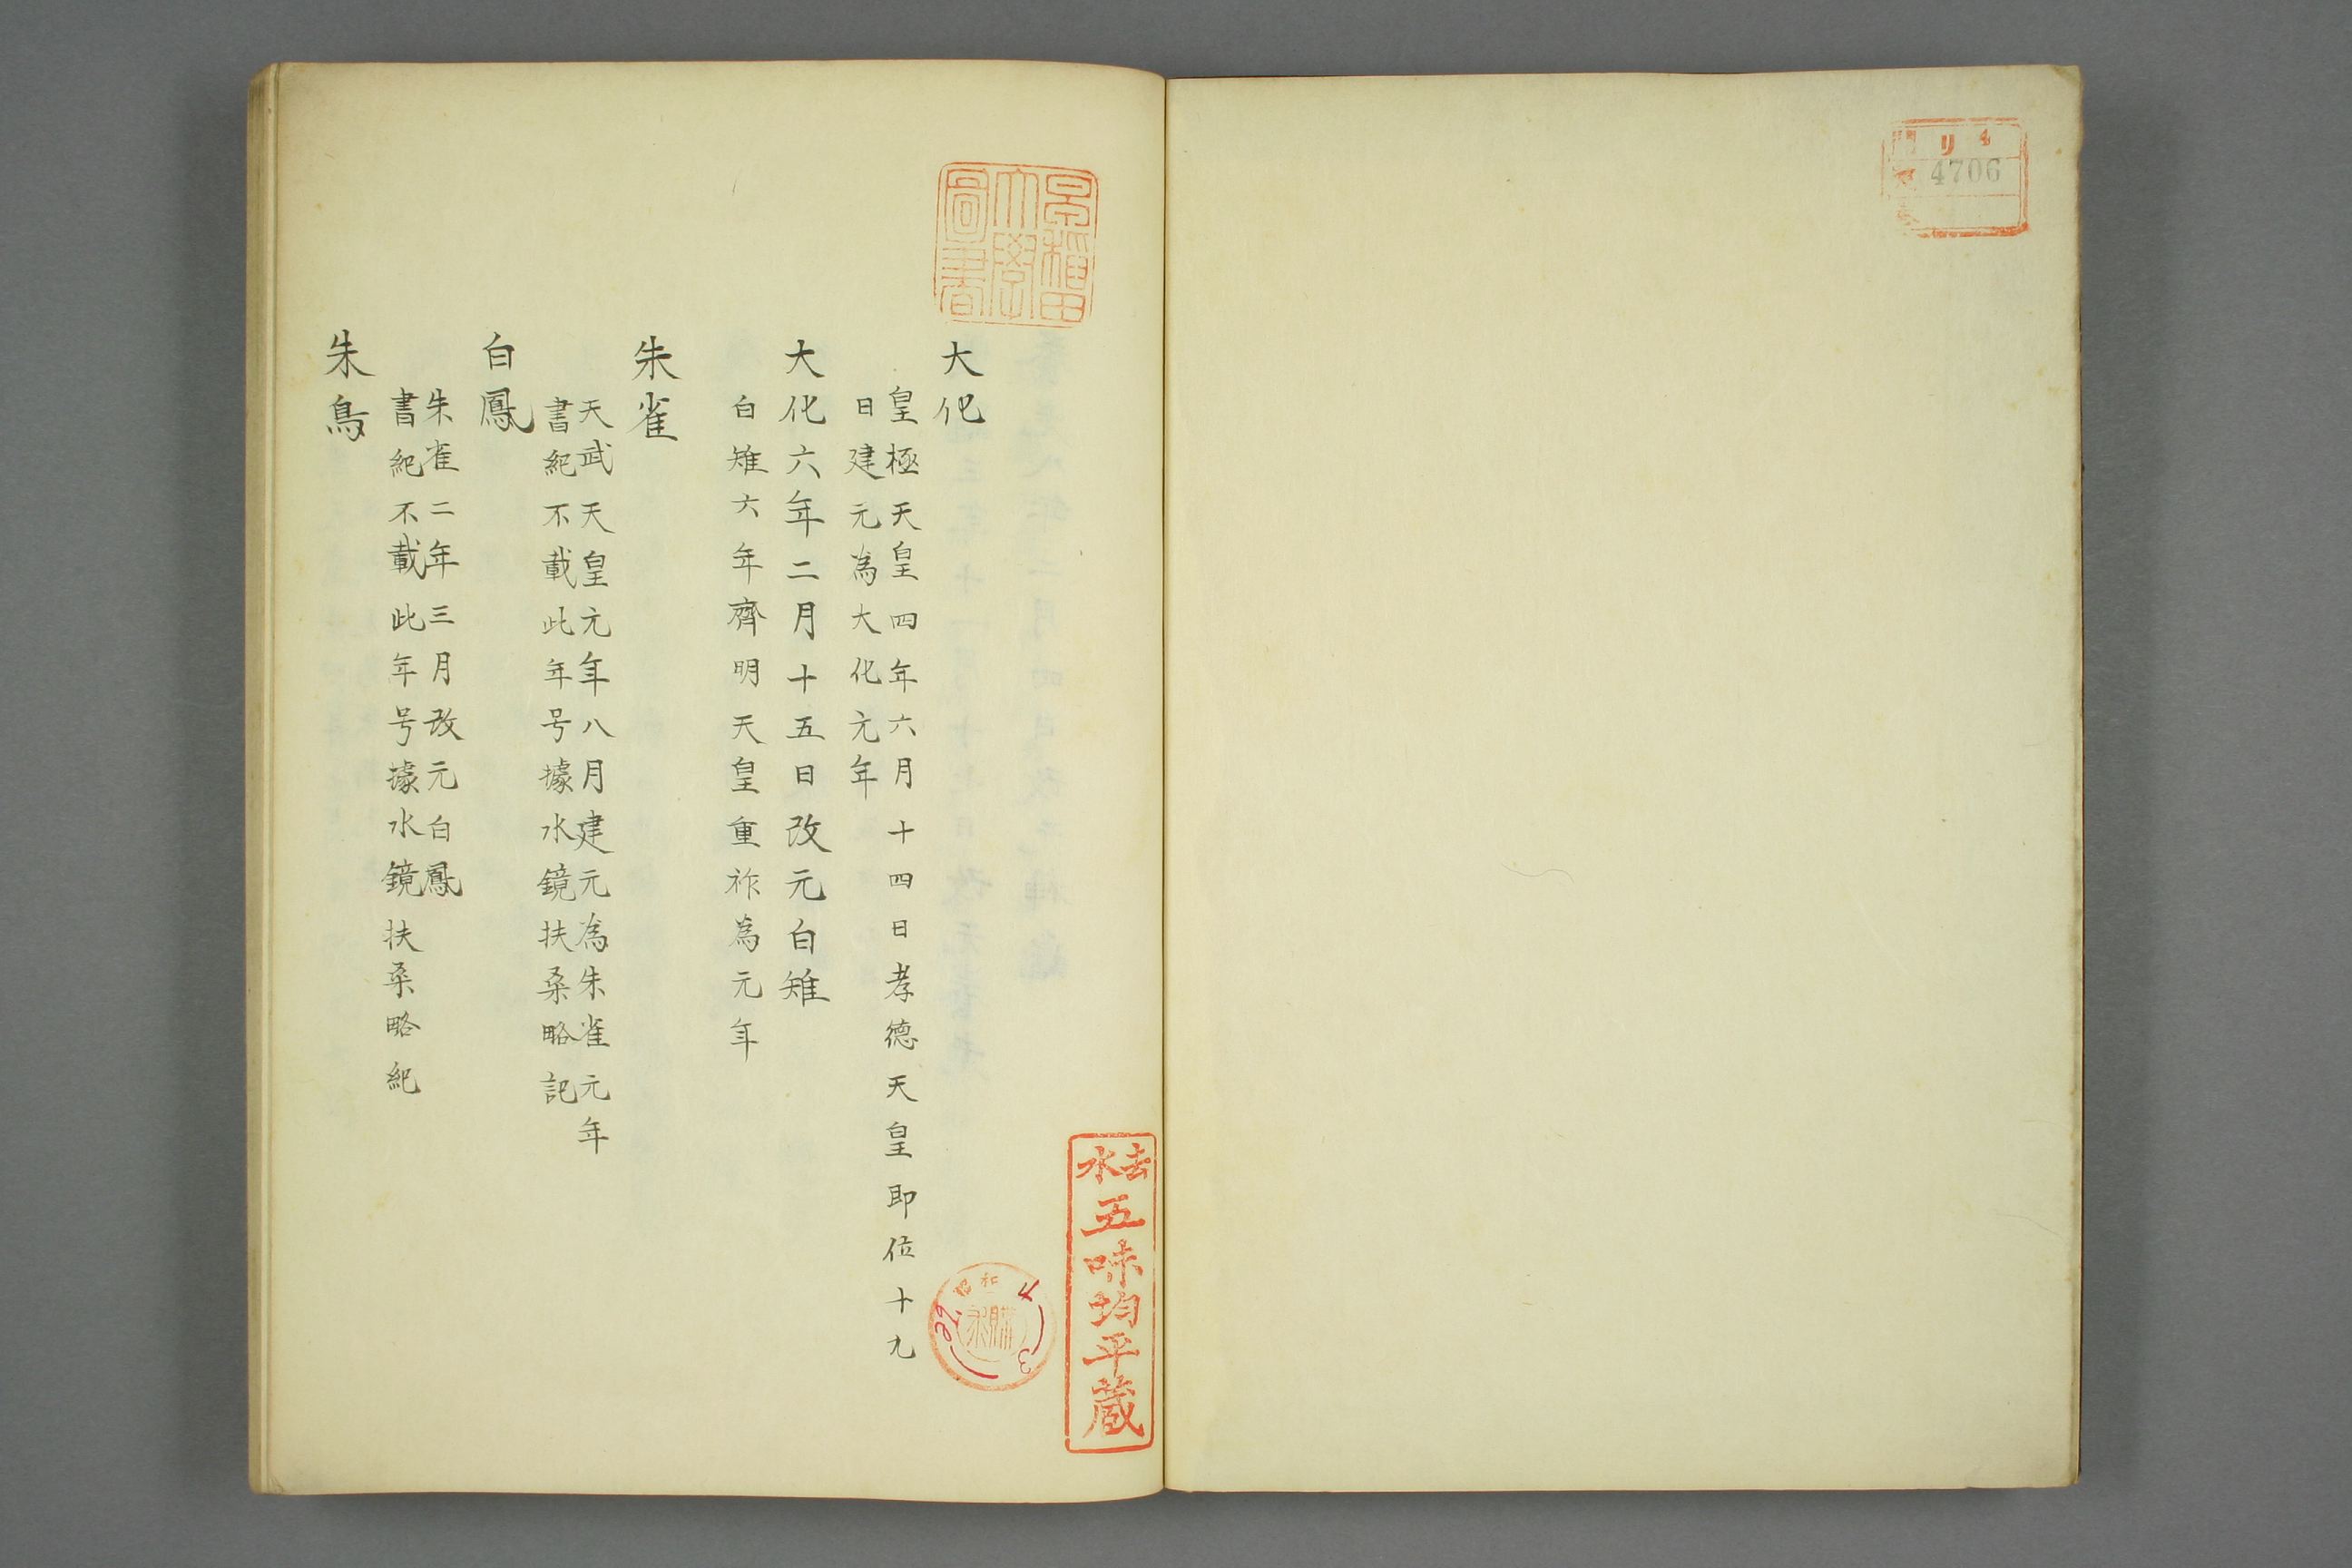 リ 4
4706
早稲田
大學
圖書
去水
五味均平蔵
昭和
4
3
大化
皇極天皇四年六月十四日孝徳天皇即位十九
日建元為大化元年
大化六年二月十五日改元白雉
白雉六年齊明天皇重祚為元年
朱雀
天武天皇元年八月建元為朱雀元年
書紀不載此年号據水鏡扶桒略記
白鳳
朱雀二年三月改元白鳳
書紀不載此年号據水鏡扶桒略紀
朱鳥